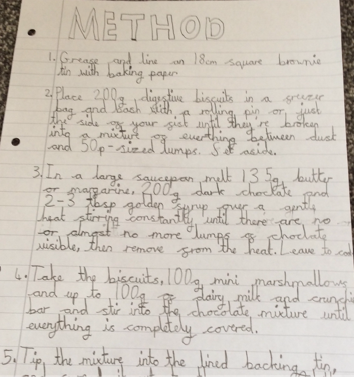 METHOD
1. Grease and line an 18cm square brownie
tin with baking paper
2. Place 200g digestive biscuits in a freezer
bag and bash with a rolling pin or just
the side of your fist until they're broken
into a mixture of everything between dust
and 50p-sized lumps. Set aside.
3. In a large saucepan melt 135g butter
or margarine, 200g dark choclate and
2-3 tbsp golden syrup over a gentle
heat stirring constantly until there are no
or almost no more lumps of choclate
visible, then remove from the heat. Leave to cool
4. Take the biscuits, 100g mini marshmallows
and up to 100g of dairy milk and crunchie
bar and stir into the chocolate mixture until
everything is completely covered.
5. Tip the mixture into the lined backing tin,